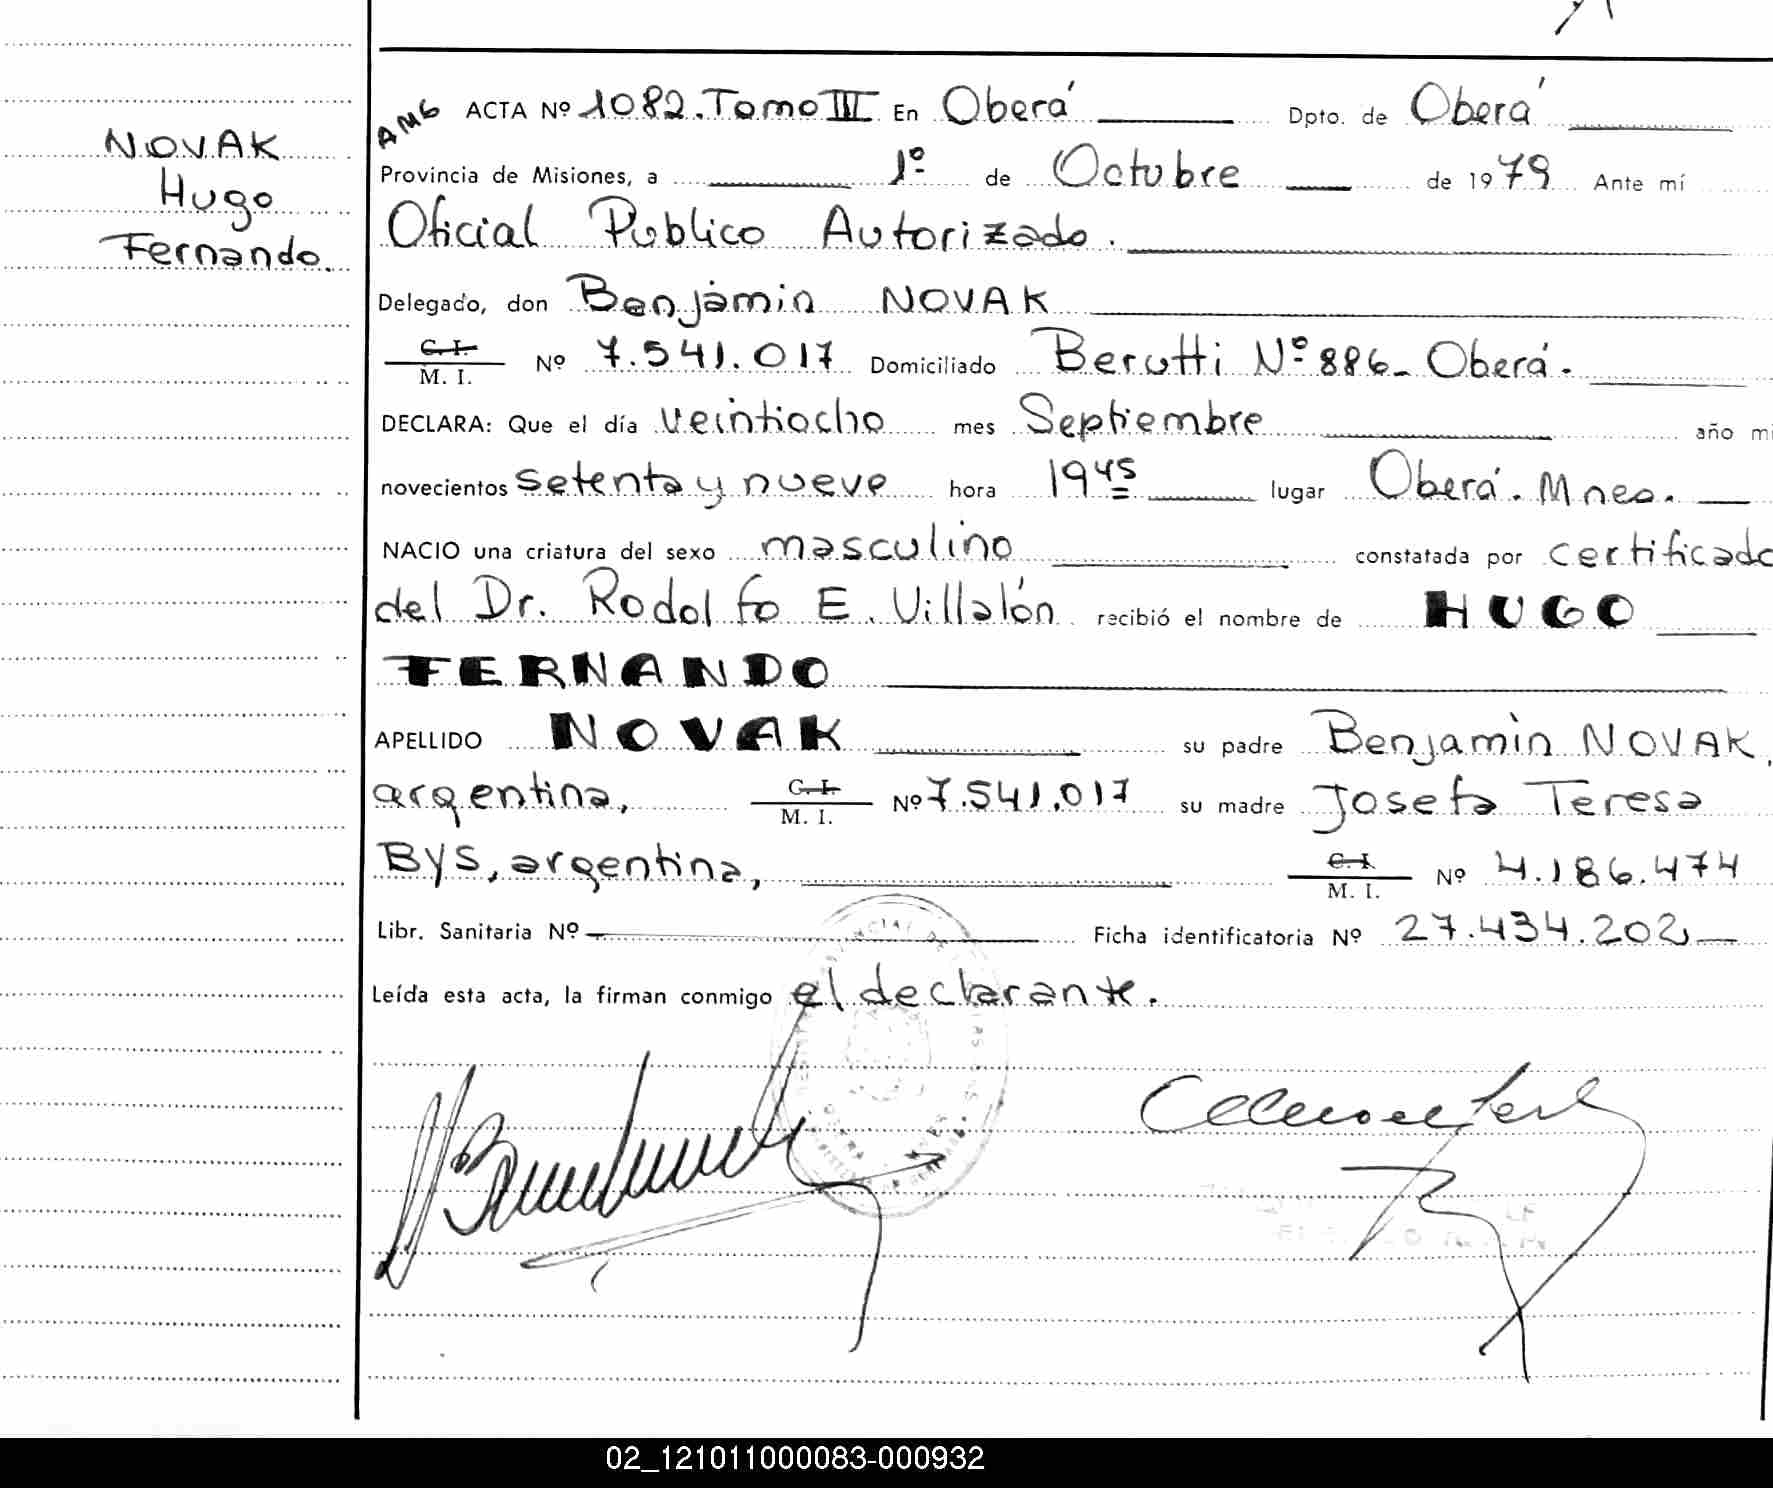 NOVAK
Hugo
Fernando.
AMG ACTA Nº 1082. Tomo III En Oberá Dpto. de Oberá
Provincia de Misiones, a 1º de Octubre de 1979 Ante mí
Oficial Público Autorizado.
Delegado, don Benjamin NOVAK
C. I.
M. I. Nº 7.541.017 Domiciliado Berutti Nº 886_ Oberá.
DECLARA: Que el día veintiocho mes Septiembre año mi
novecientos setenta y nueve hora 1945 lugar Oberá. Mnes.
NACIO una criatura del sexo masculino constatada por certificado
del Dr. Rodolfo E. Villalón recibió el nombre de HUGO
FERNANDO
APELLIDO NOVAK su padre Benjamin NOVAK,
argentina, C. I. M. I. Nº 7.541.017 su madre Josefa Teresa
BYS, argentina, C. I. M. I. Nº 4.186.474
Libr. Sanitaria Nº Ficha identificatoria Nº 27.434.202
Leída esta acta, la firman conmigo el declarante.
02_121011000083-000932